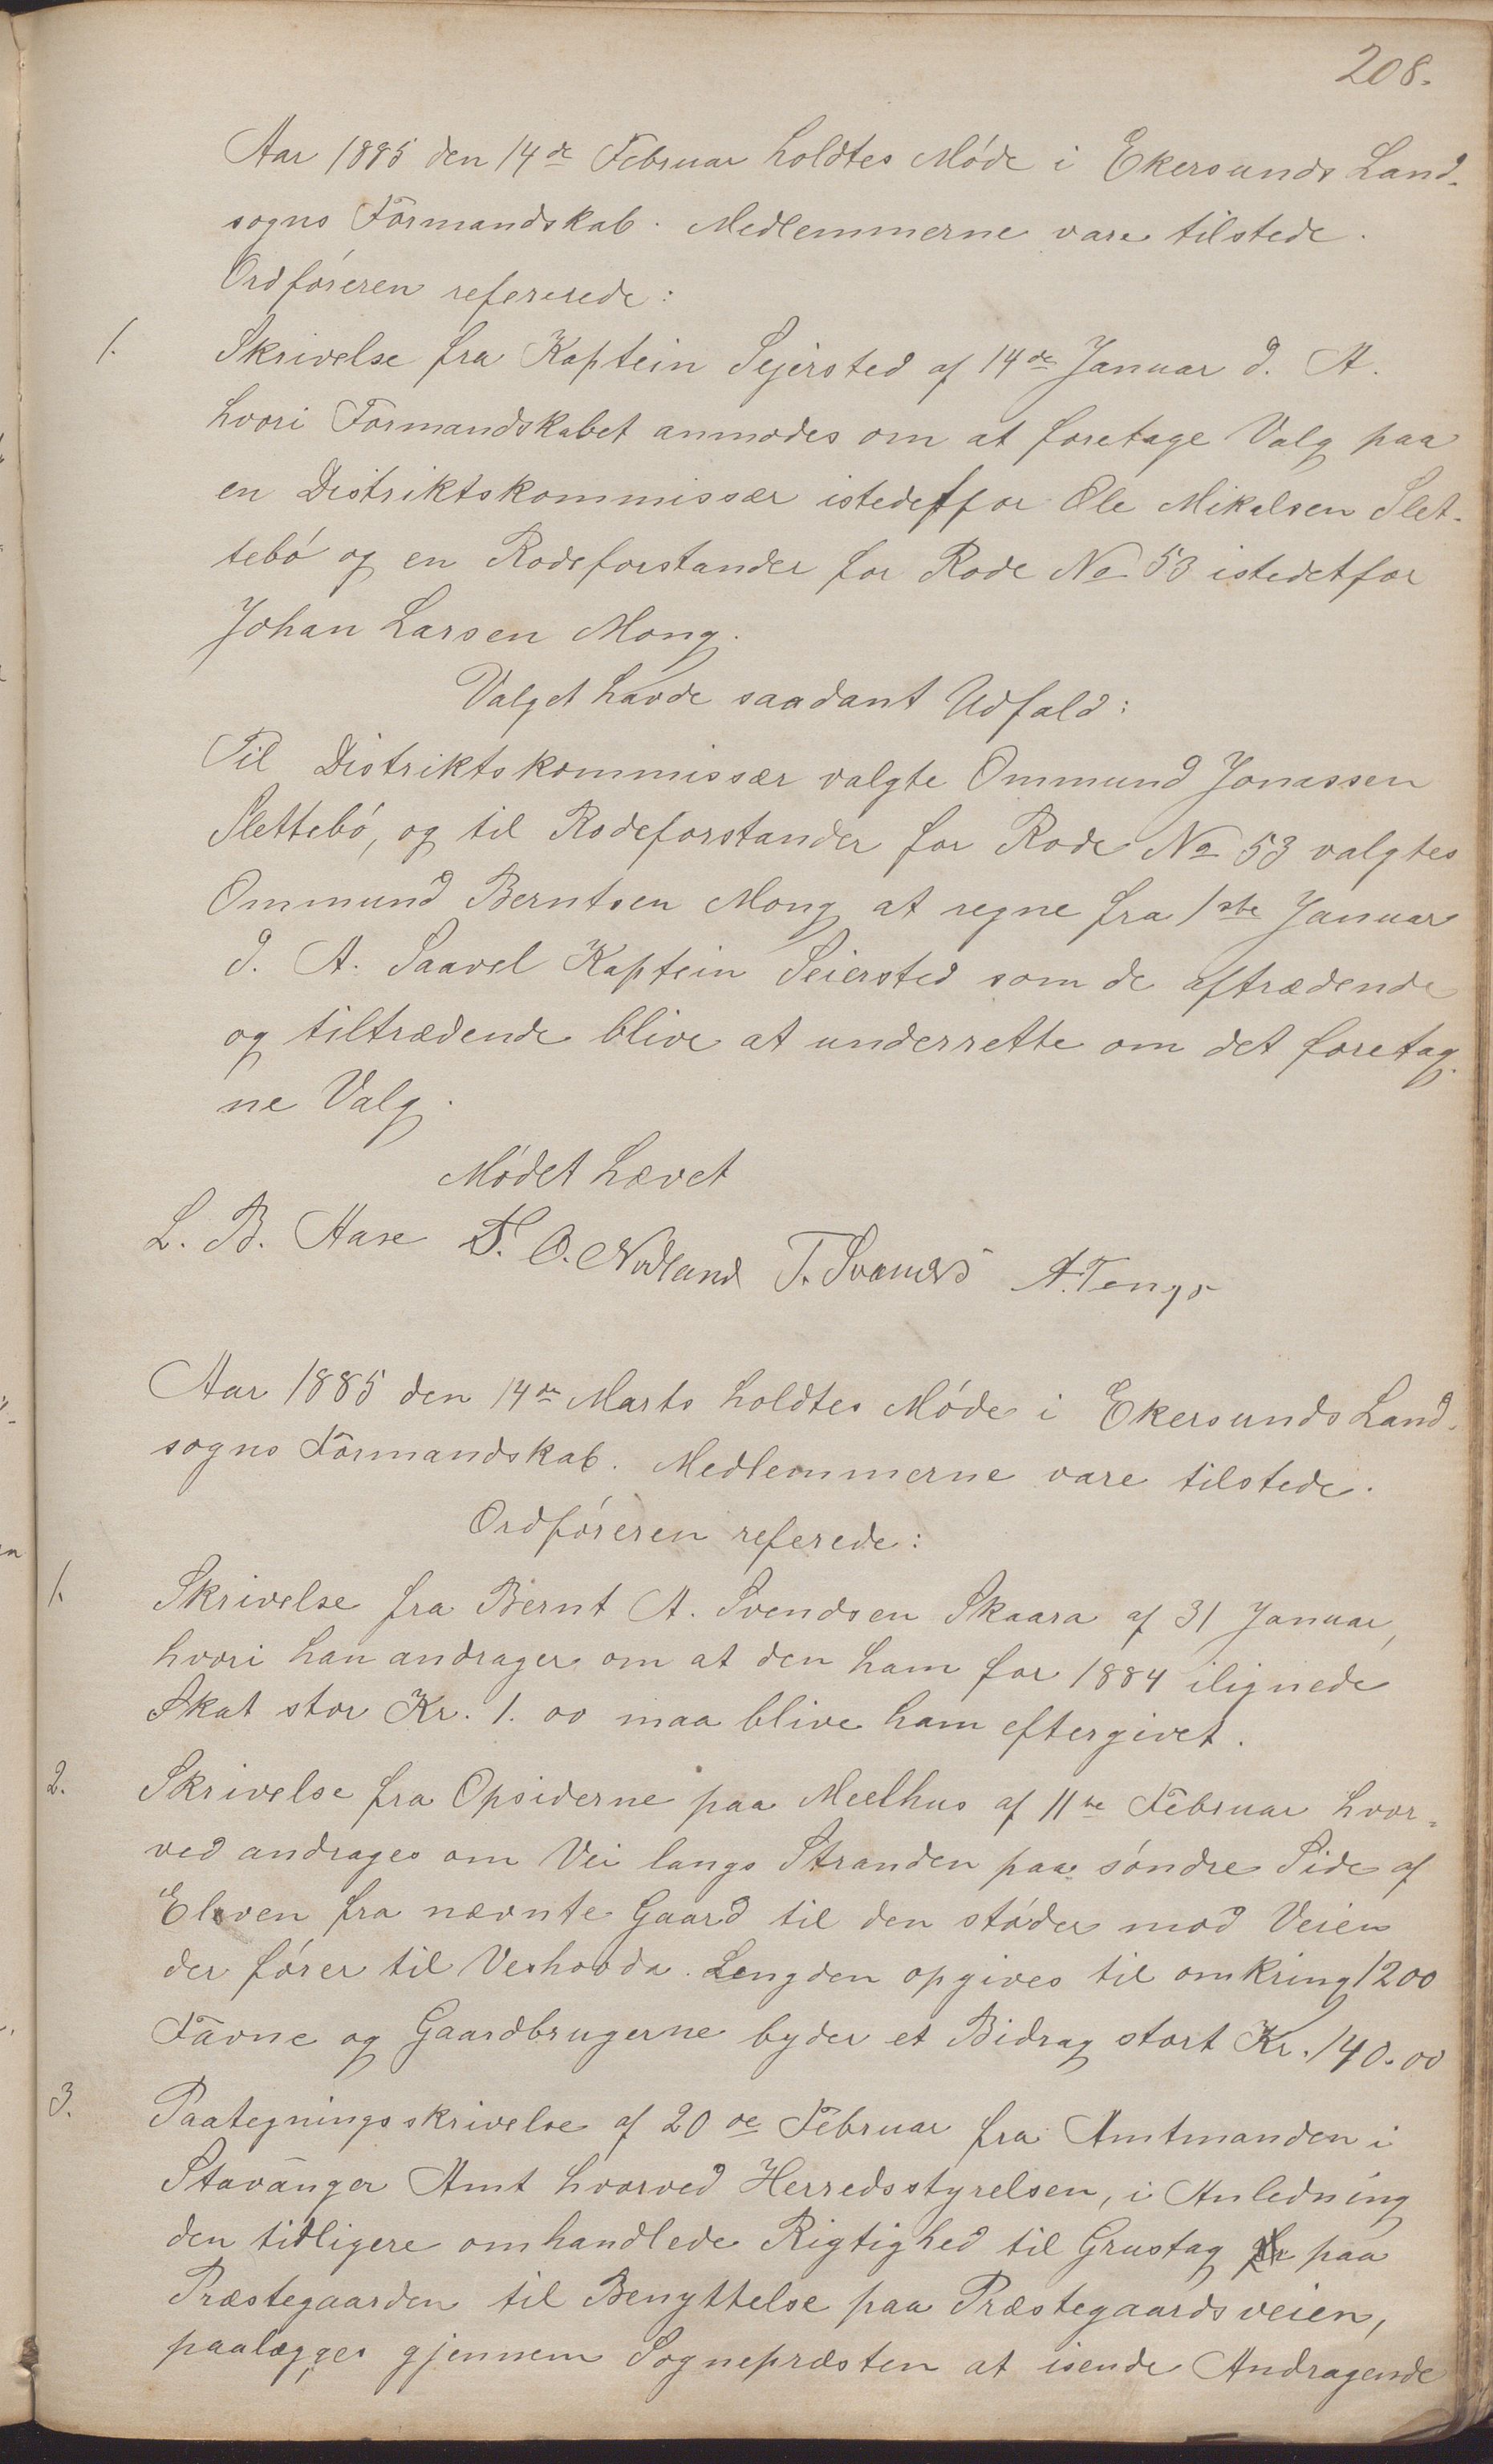 208.
Aar 1885 den 14de Februar holdtes Møde i Ekersunds Land-
sogns Formandskab. Medlemmerne vare tilstede.
Ordføreren refererede:
1. Skrivelse fra Kaptein Sejersted af 14de Januar d. A.
hvori Formandskabet anmodes om at foretage Valg paa
en Distriktskommissær istedetfor Ole Mikalsen Slet-
tebø og en Rodeforstander for Rode No 53 istedetfor
Johan Larsen Mong.
Valget havde saadant Udfald:
Til Distriktskommissær valgte Ommund Jonassen
Slettebø, og til Rodeforstander for Rode No 53 valgtes
Ommund Berntsen Mong at regne fra 1ste Januar
d. A. Saavel Kaptein Seiersted som de aftrædende
og tiltrædende blive at underrette om det foretag-
ne Valg.
Mødet hævet
L. B. Aase T. O. Nodland T. Svanæs A. Tengs
Aar 1885 den 14de Marts holdtes Møde i Ekersunds Land-
sogns Formandskab. Medlemmerne vare tilstede.
Ordføreren referede:
1. Skrivelse fra Bernt A. Svendsen Skaara af 31 Januar,
hvori han andrager om at den ham for 1884 ilignede
Skat stor Kr. 1.00 maa blive ham eftergivet.
2. Skrivelse fra Opsiderne paa Meelhus af 11te Februar hvor-
ved andrages om Vei langs Stranden paa søndre Side af
Elven fra nævnte Gaard til den støder mod Veien
der fører til Veshovda. Lengden opgives til omkring 1200
Favne og Gaardbrugerne byder et Bidrag stort Kr. 140.00
3. Paategningsskrivelse af 20de Februar fra Amtmanden i
Stavanger Amt hvorved Herredsstyrelsen, i Anledning
den tidligere omhandlede Rigtighed til Grustag paa
Præstegaarden til Benyttelse paa Præstegaardsveien,
paalægges gjennem Sognepræsten at isende Andragende